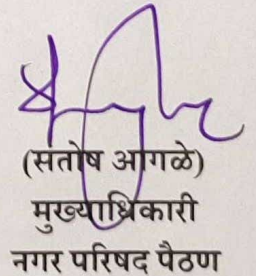 (संतोष आगळे)
मुख्याधिकारी
नगर परिषद पैठण